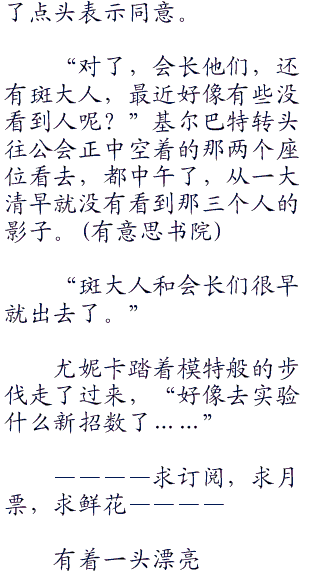 了点头表示同意。
“对了，会长他们，还
有斑大人，最近好像有些没
看到人呢？”基尔巴特转头
往公会正中空着的那两个座
位看去，都中午了，从一大
清早就没有看到那三个人的
影子。(有意思书院)
“斑大人和会长们很早
就出去了。”
尤妮卡踏着模特般的步
伐走了过来，“好像去实验
什么新招数了……”
————求订阅，求月
票，求鲜花————
有着一头漂亮